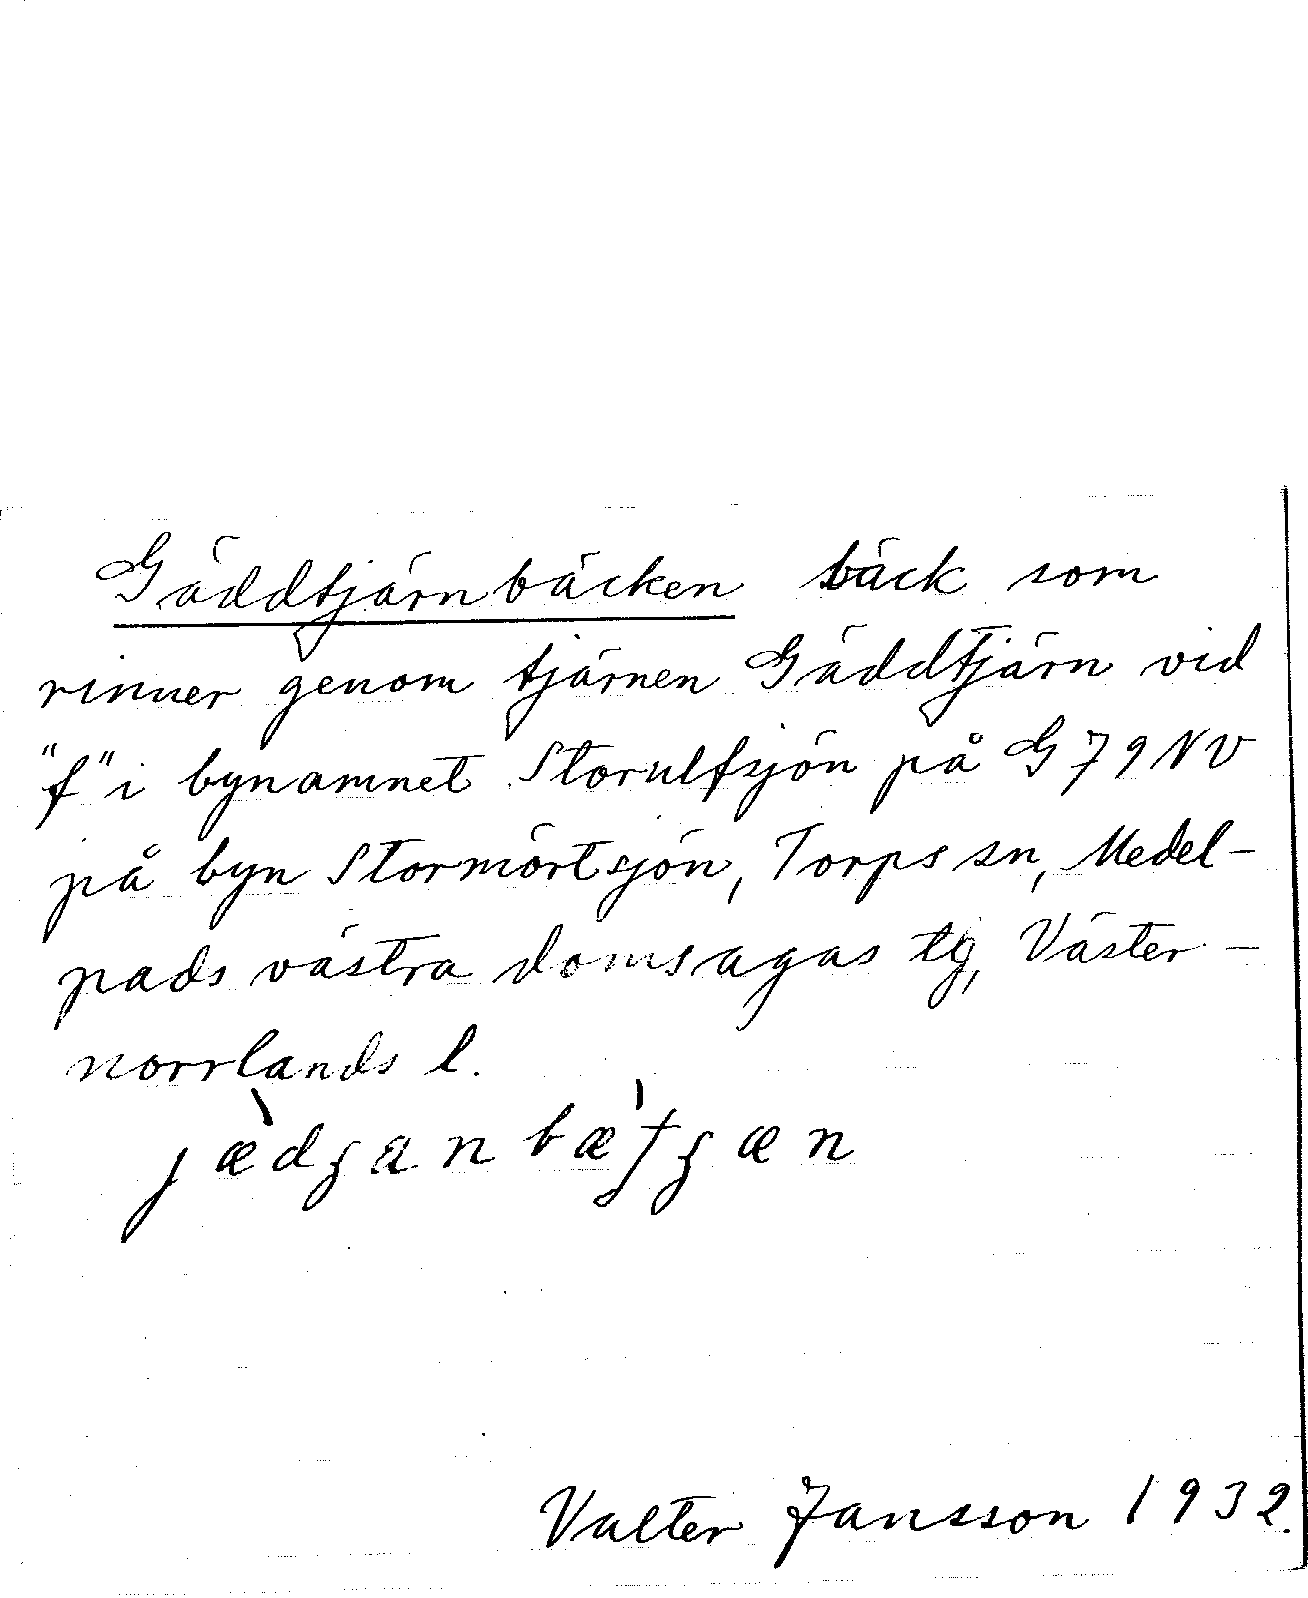 Gäddtjärnbäcken bäck som
rinner genom tjärnen Gäddtjärn vid
"f" i bynamnet Storulfsjön på G 79 NV
på byn Stormörtsjön, Torps sn, Medel-
pads västra domsagas tg, Väster-
norrlands l.
Valter Jansson 1932.